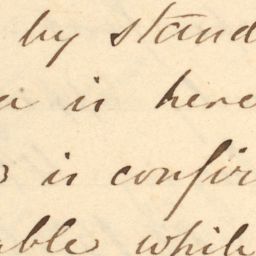 by stand
a is here
is confir
ble while